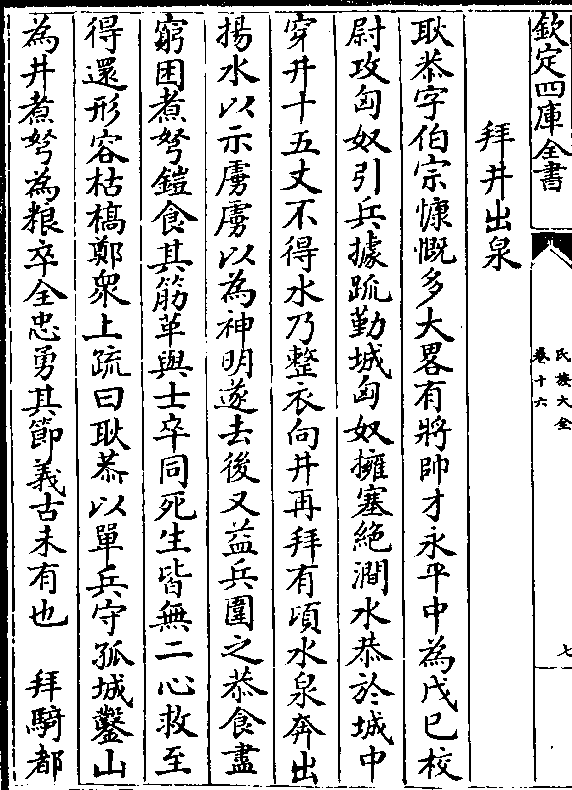 欽定四庫全書
氏族大全
卷十六
七
拜井出泉
耿恭字伯宗慷慨多大畧有將帥才永平中為戊已校
尉攻匈奴引兵據䟽勤城匈奴擁塞絶澗水恭於城中
穿井十五丈不得水乃整衣向井再拜有頃水泉奔出
揚水以示虜虜以為神明遂去後又益兵圍之恭食盡
窮困煮弩鎧食其筋革與士卒同死生皆無二心救至
得還形容枯槁鄭衆上䟽曰耿恭以單兵守孤城鑿山
為井煮弩為粮卒全忠勇其節義古未有也　拜騎都